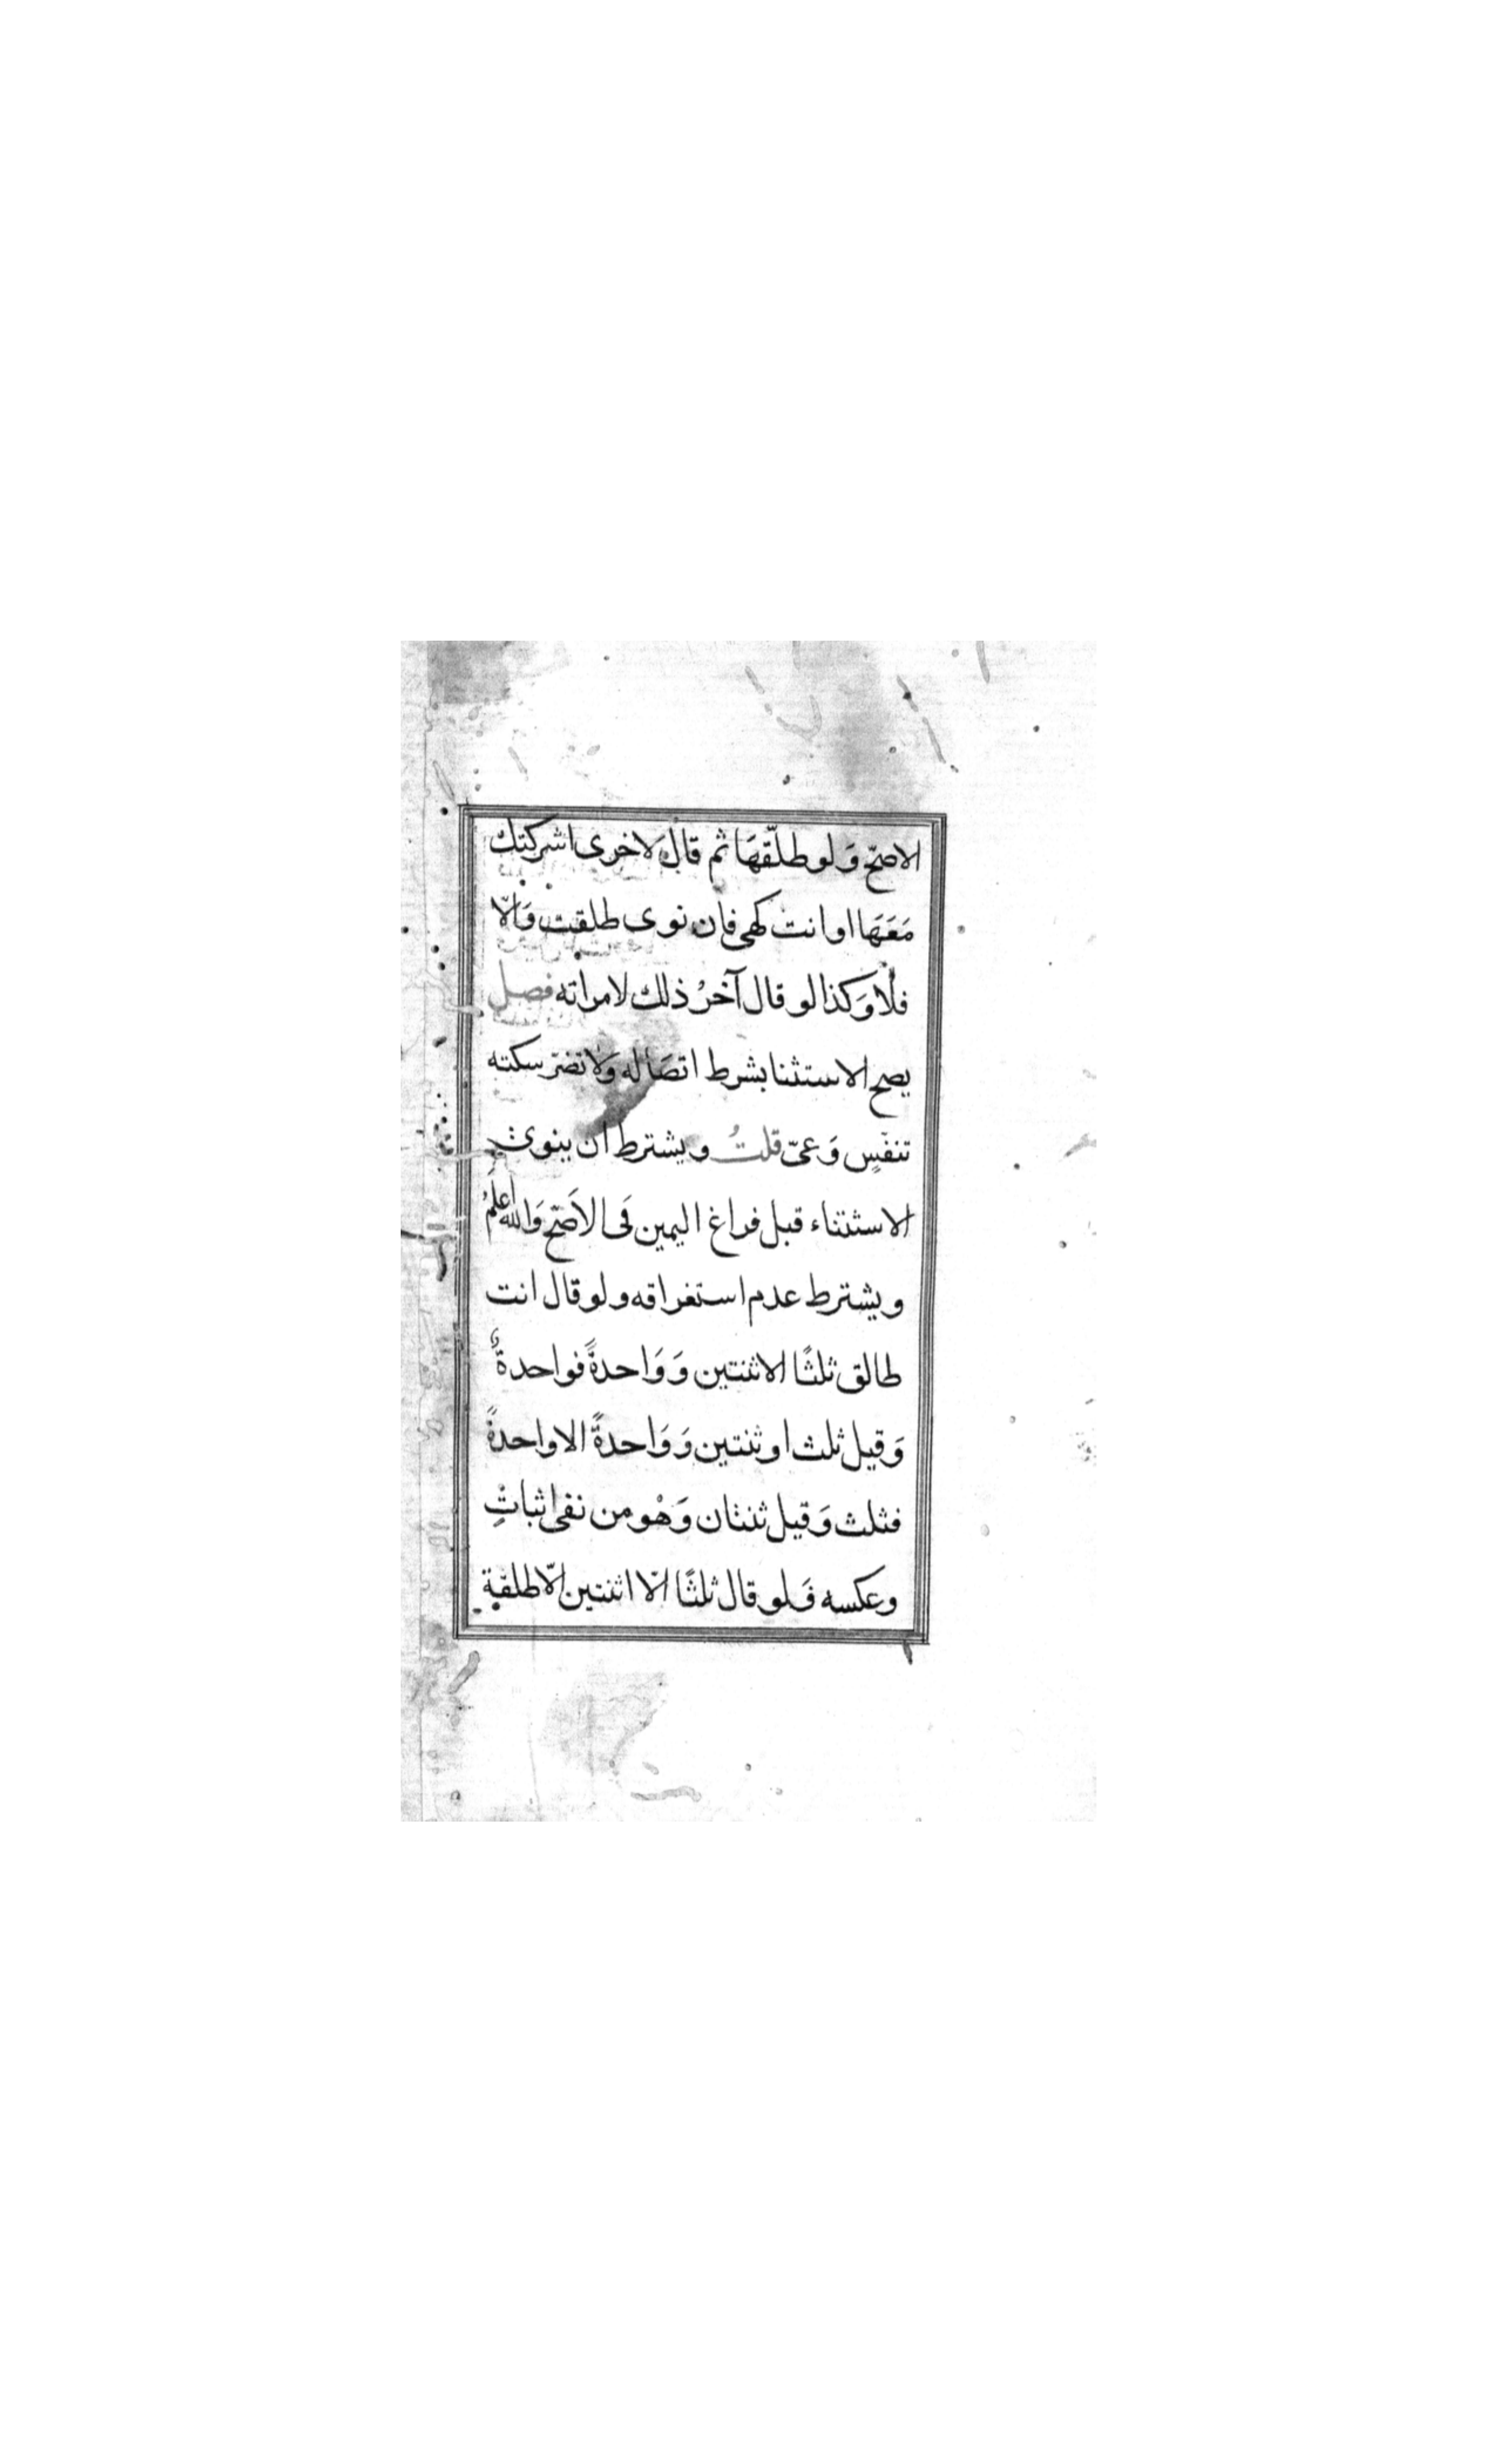 الاصحّ وَلو طلّقهَا ثم قال لاخرى اشركتك
مَعَهَا او انت كهى فان نوى طلقت وَالّا
فلَا وَكذا لو قال آخرُ ذلك لامراته فصل
يصح الاستثنا بشرط اتصَاله وَلا تضرّ سكته
تنفسٍ وَعىّ قلتُ ويشترط ان ينوى
الاستثناء قبل فراغ اليمين فى الاَصَحّ وَالله اَعلمُ
ويشترط عدم استغراقه ولو قال انت
طالق ثلثًا الا ثنتين وَوَاحدةً فواحدةٌ
وَقيل ثلث او ثنتين وَوَاحدةً الا واحدةً
فثلث وَقيل ثنتان وَهْو من نفى اثباتٍ
وعكسه فَلو قال ثلثًا الّا اثنتين الّا طلقة